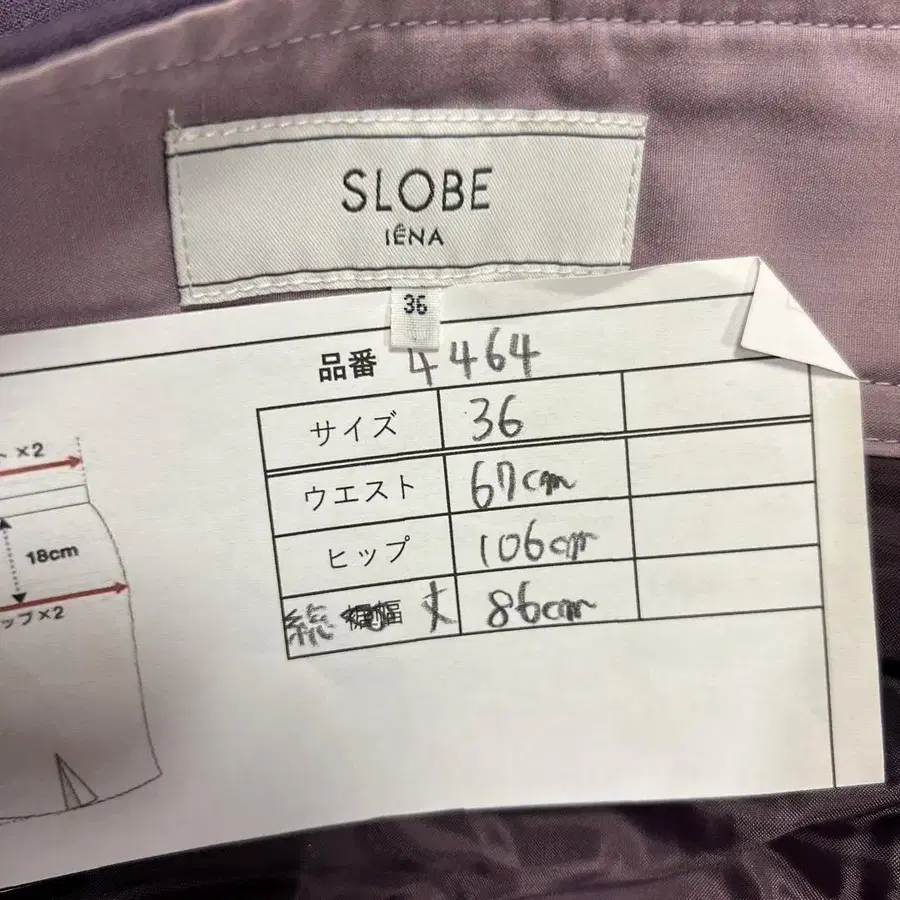 SLOBE
IÉNA
36
品番 4464
サイズ 36
ウエスト 67cm
ヒップ 106cm
総丈 86cm
ト ×2
18cm
ップ×2